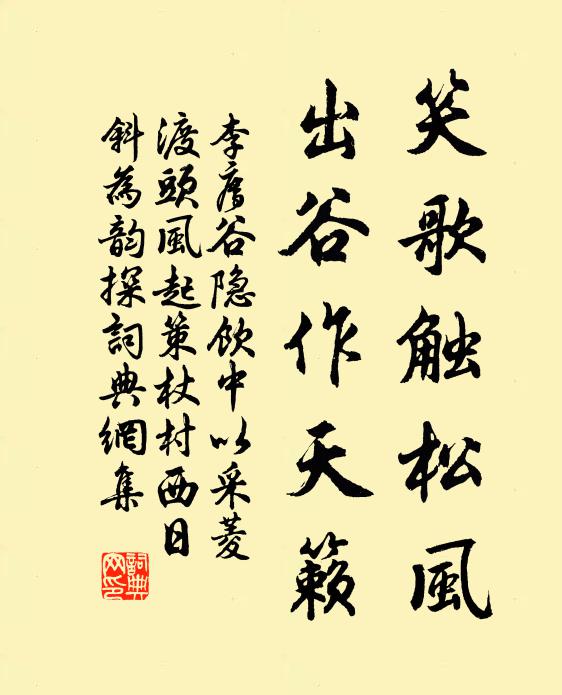 笑歌触松風
出谷作天籟
李膺谷隐飲中以采菱
渡頭風起策杖村西日
斜為韵探詞典網集
詞典网印